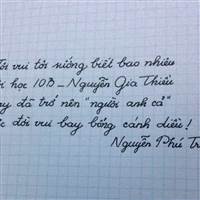 vui tới sướng biết bao nhiêu
học 10B - Nguyễn Gia Thiều
đã trở nên "người anh cả"
đời vui bay bổng cánh diều!
Nguyễn Phú Tr